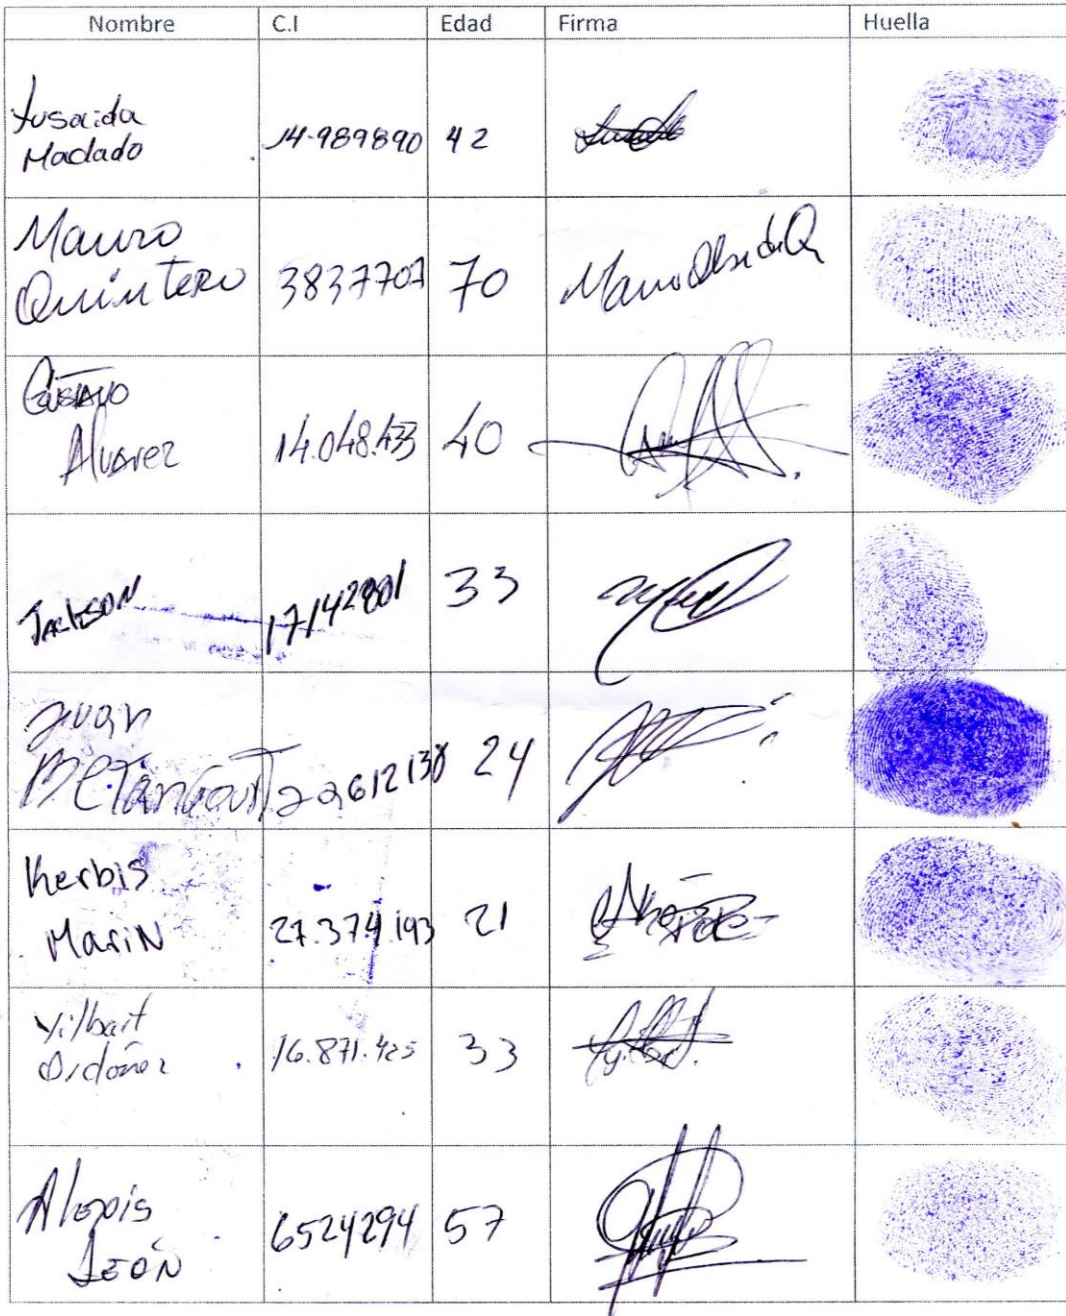 Nombre C.I Edad Firma Huella
Yusaida
Machado 14-989890 42
Mauro
Quintero 3837707 70
Gustavo
Alvarez 14.048.433 40
Jackson 17142801 33
Juan
Betancourt 22612138 24
Kerbis
Marin 27.374.193 21
Yilbait
Ordoñez 16.871.425 33
Alexis
León 6524294 57